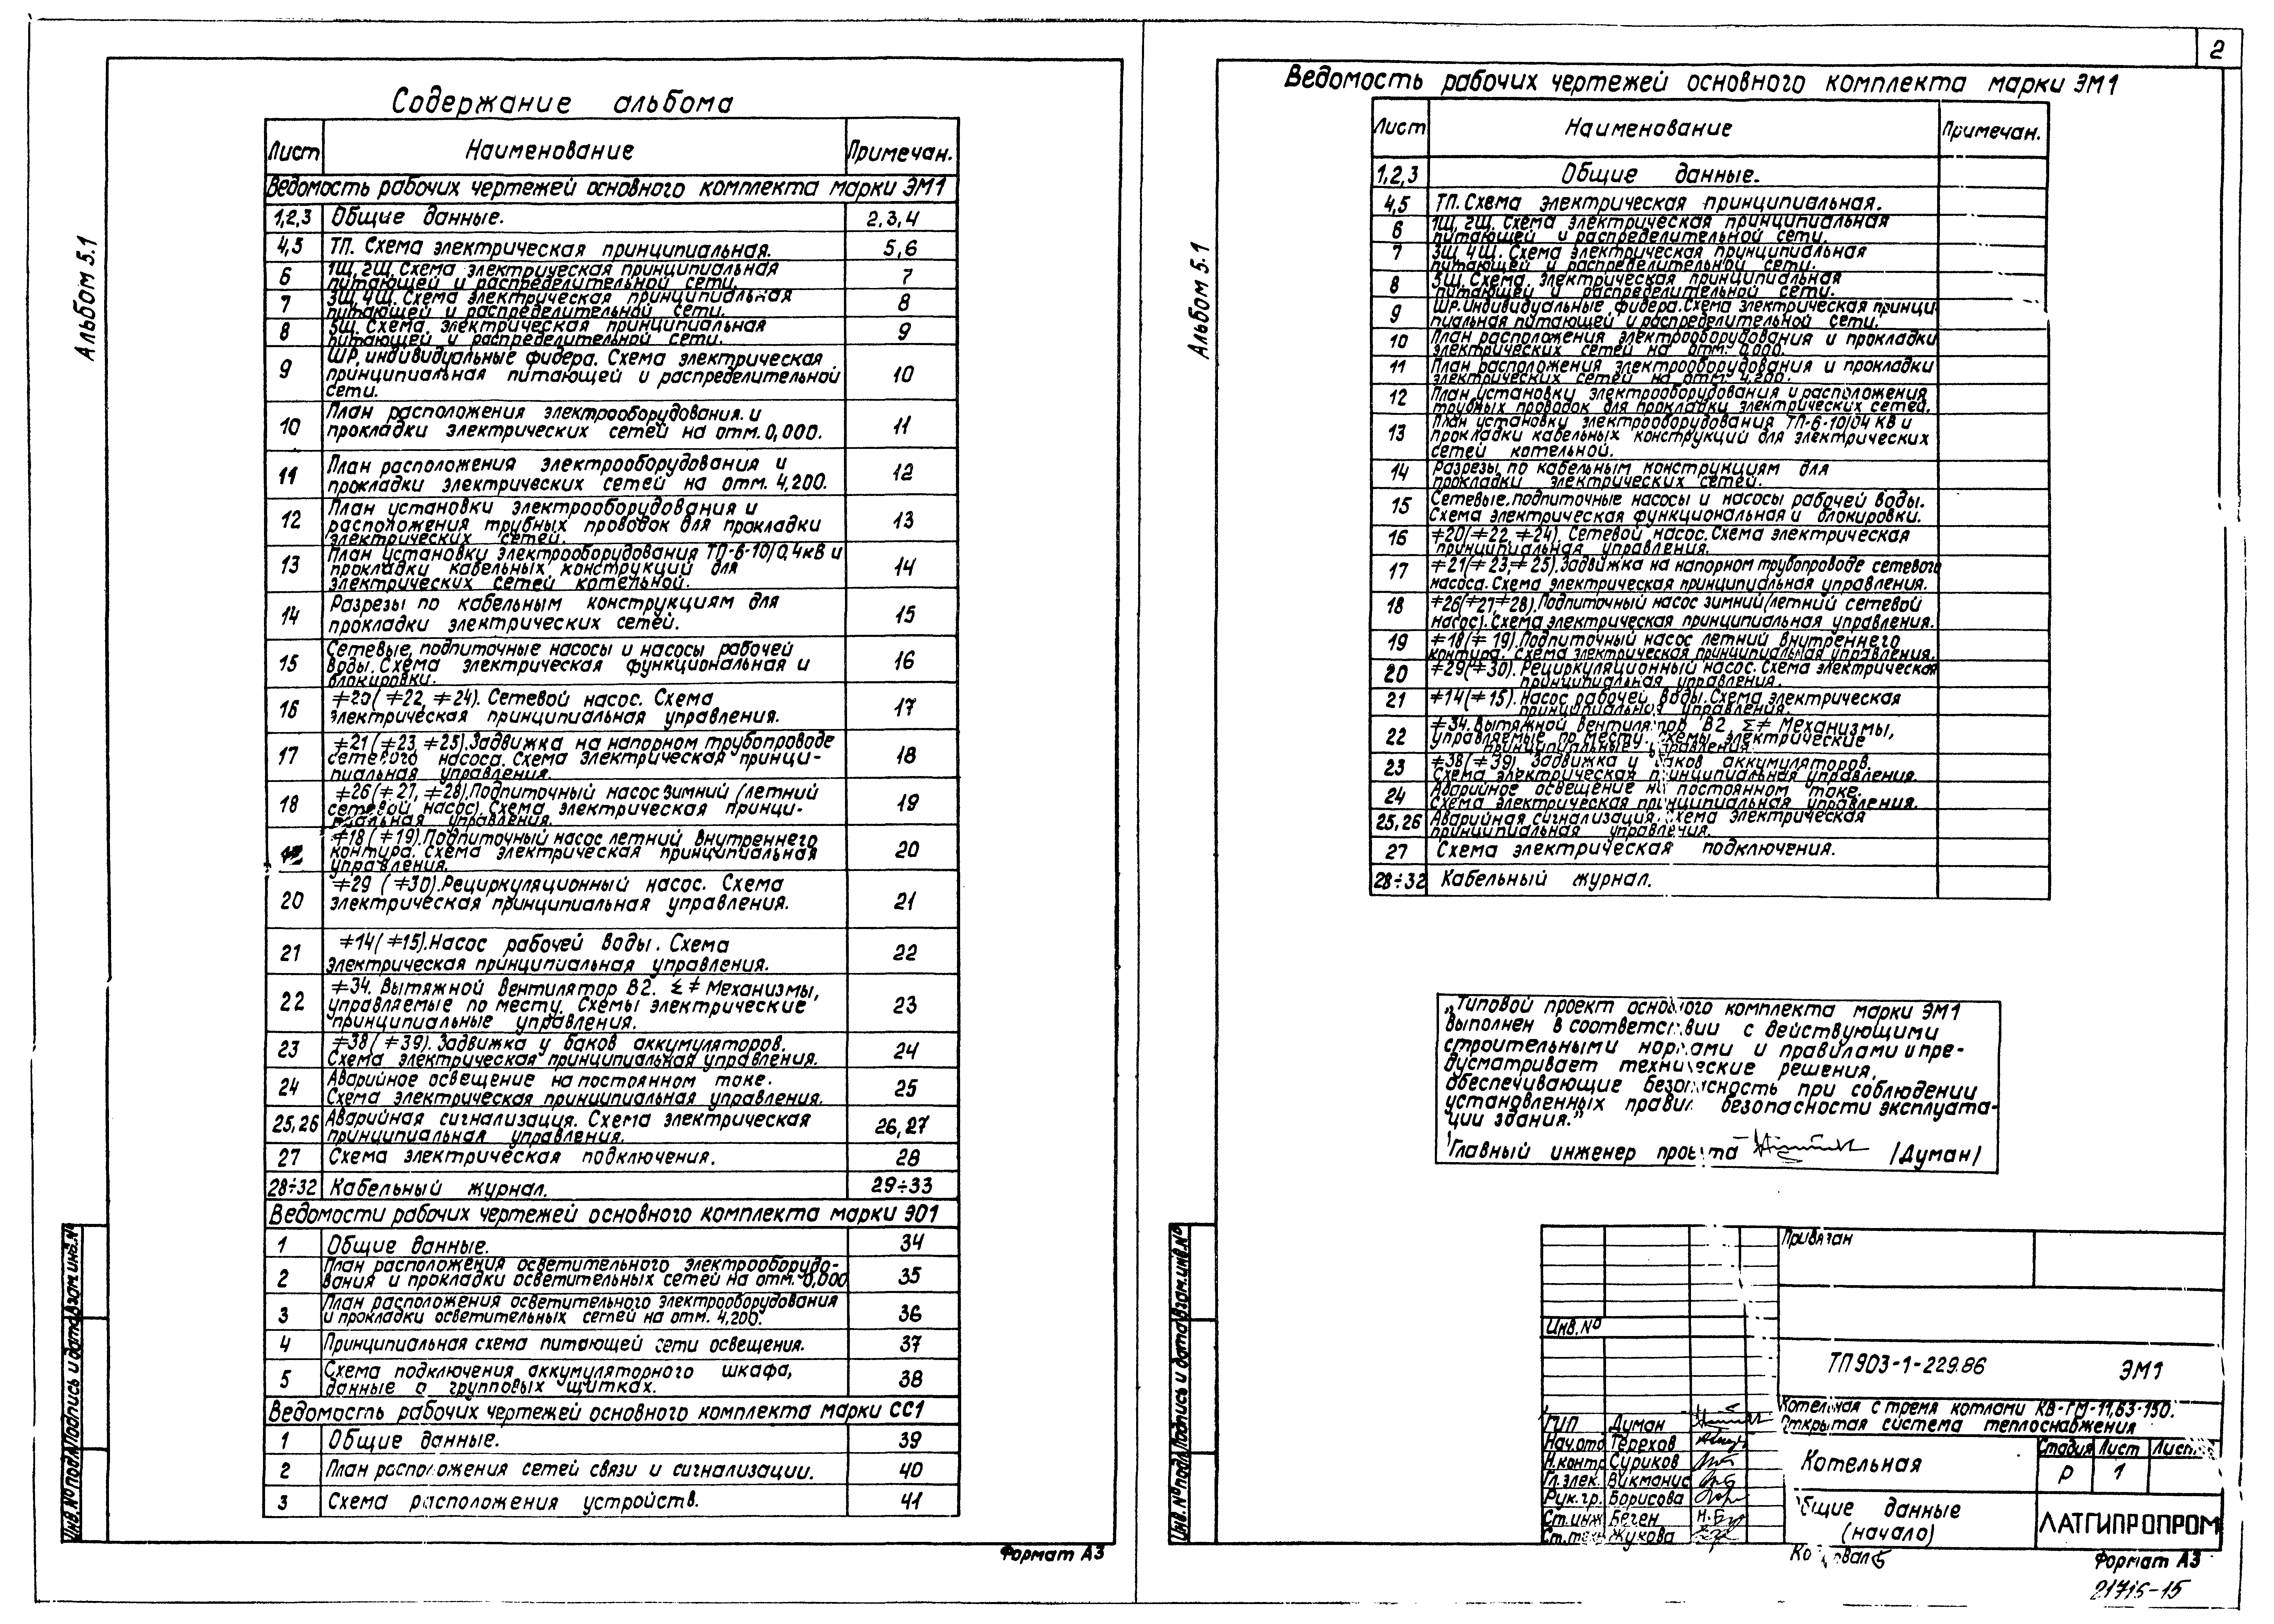 2
Альбом 5.1
Содержание альбома
Лист Наименование Примечан.
Ведомость рабочих чертежей основного комплекта марки ЭМ1
1,2,3 Общие данные. 2,3,4
4,5 ТП. Схема электрическая принципиальная. 5,6
6 1Щ, 2Щ. Схема электрическая принципиальная 7
питающей и распределительной сети.
7 3Щ, 4Щ. Схема электрическая принципиальная 8
питающей и распределительной сети.
8 5Щ. Схема электрическая принципиальная 9
питающей и распределительной сети.
9 ШР, индивидуальные фидера. Схема электрическая
принципиальная питающей и распределительной 10
сети.
10 План расположения электрооборудования и
прокладки электрических сетей на отм. 0,000. 11
11 План расположения электрооборудования и
прокладки электрических сетей на отм. 4,200. 12
12 План установки электрооборудования и
расположения трубных проводок для прокладки 13
электрических сетей.
13 План установки электрооборудования ТП-6-10/0,4кВ и
прокладки кабельных конструкций для 14
электрических сетей котельной.
14 Разрезы по кабельным конструкциям для
прокладки электрических сетей. 15
15 Сетевые, подпиточные насосы и насосы рабочей
воды. Схема электрическая функциональная и 16
блокировки.
16 ≠20(≠22, ≠24). Сетевой насос. Схема
электрическая принципиальная управления. 17
17 ≠21(≠23, ≠25). Задвижка на напорном трубопроводе
сетевого насоса. Схема электрическая принци- 18
пиальная управления.
18 ≠26(≠27, ≠28). Подпиточный насос зимний (летний
сетевой насос). Схема электрическая принци- 19
пиальная управления.
≠18(≠19). Подпиточный насос летний внутреннего
контура. Схема электрическая принципиальная 20
управления.
20 ≠29 (≠30). Рециркуляционный насос. Схема
электрическая принципиальная управления. 21
21 ≠14(≠15). Насос рабочей воды. Схема
электрическая принципиальная управления. 22
22 ≠34. Вытяжной вентилятор В2. Σ≠ Механизмы,
управляемые по месту. Схемы электрические 23
принципиальные управления.
23 ≠38(≠39). Задвижка у баков аккумуляторов.
Схема электрическая принципиальная управления. 24
24 Аварийное освещение на постоянном токе.
Схема электрическая принципиальная управления. 25
25,26 Аварийная сигнализация. Схема электрическая
принципиальная управления. 26,27
27 Схема электрическая подключения. 28
28÷32 Кабельный журнал. 29÷33
Ведомости рабочих чертежей основного комплекта марки ЭО1
1 Общие данные. 34
2 План расположения осветительного электрооборудо-
вания и прокладки осветительных сетей на отм. 0,000 35
3 План расположения осветительного электрооборудования
и прокладки осветительных сетей на отм. 4,200. 36
4 Принципиальная схема питающей сети освещения. 37
5 Схема подключения аккумуляторного шкафа,
данные о групповых щитках. 38
Ведомость рабочих чертежей основного комплекта марки СС1
1 Общие данные. 39
2 План расположения сетей связи и сигнализации. 40
3 Схема расположения устройств. 41
Инв.№ подл. Подпись и дата Взам.инв.№
Формат А3
Альбом 5.1
Ведомость рабочих чертежей основного комплекта марки ЭМ1
Лист Наименование Примечан.
1,2,3 Общие данные.
4,5 ТП. Схема электрическая принципиальная.
6 1Щ, 2Щ. Схема электрическая принципиальная
питающей и распределительной сети.
7 3Щ, 4Щ. Схема электрическая принципиальная
питающей и распределительной сети.
8 5Щ. Схема электрическая принципиальная
питающей и распределительной сети.
9 ШР. индивидуальные фидера. Схема электрическая принци-
пиальная питающей и распределительной сети.
10 План расположения электрооборудования и прокладки
электрических сетей на отм. 0,000.
11 План расположения электрооборудования и прокладки
электрических сетей на отм. 4,200.
12 План установки электрооборудования и расположения
трубных проводок для прокладки электрических сетей.
13 План установки электрооборудования ТП-6-10/04 кВ и
прокладки кабельных конструкций для электрических
сетей котельной.
14 Разрезы по кабельным конструкциям для
прокладки электрических сетей.
15 Сетевые, подпиточные насосы и насосы рабочей воды.
Схема электрическая функциональная и блокировки.
16 ≠20(≠22, ≠24). Сетевой насос. Схема электрическая
принципиальная управления.
17 ≠21(≠23, ≠25). Задвижка на напорном трубопроводе сетевого
насоса. Схема электрическая принципиальная управления.
18 ≠26(≠27, ≠28). Подпиточный насос зимний (летний сетевой
насос). Схема электрическая принципиальная управления.
19 ≠18(≠19). Подпиточный насос летний внутреннего
контура. Схема электрическая принципиальная управления.
20 ≠29(≠30). Рециркуляционный насос. Схема электрическая
принципиальная управления.
21 ≠14(≠15). Насос рабочей воды. Схема электрическая
принципиальная управления.
22 ≠34. Вытяжной вентилятор В2. Σ≠ Механизмы,
управляемые по месту. Схемы электрические
принципиальные управления.
23 ≠38(≠39). Задвижка у баков аккумуляторов.
Схема электрическая принципиальная управления.
24 Аварийное освещение на постоянном токе.
Схема электрическая принципиальная управления.
25,26 Аварийная сигнализация. Схема электрическая
принципиальная управления.
27 Схема электрическая подключения.
28÷32 Кабельный журнал.
„Типовой проект основного комплекта марки ЭМ1
выполнен в соответствии с действующими
строительными нормами и правилами и пре-
дусматривает технические решения,
обеспечивающие безопасность при соблюдении
установленных правил безопасности эксплуата-
ции здания."
Главный инженер проекта /Думан/
Привязан
Инв.№
ТП 903-1-229.86 ЭМ1
Котельная с тремя котлами КВ-ГМ-11,63-150.
Открытая система теплоснабжения
ГИП Думан
Нач.отд Терехов
Н.контр Суриков
Гл.элек. Викманис
Рук.гр. Борисова
Ст.инж Беген
Ст.техн Жукова
Котельная
Стадия Лист Листов
Р 1
Общие данные
(начало)
ЛАТГИПРОПРОМ
Инв.№ подл. Подпись и дата Взам.инв.№
Копировал Формат А3
21715-15